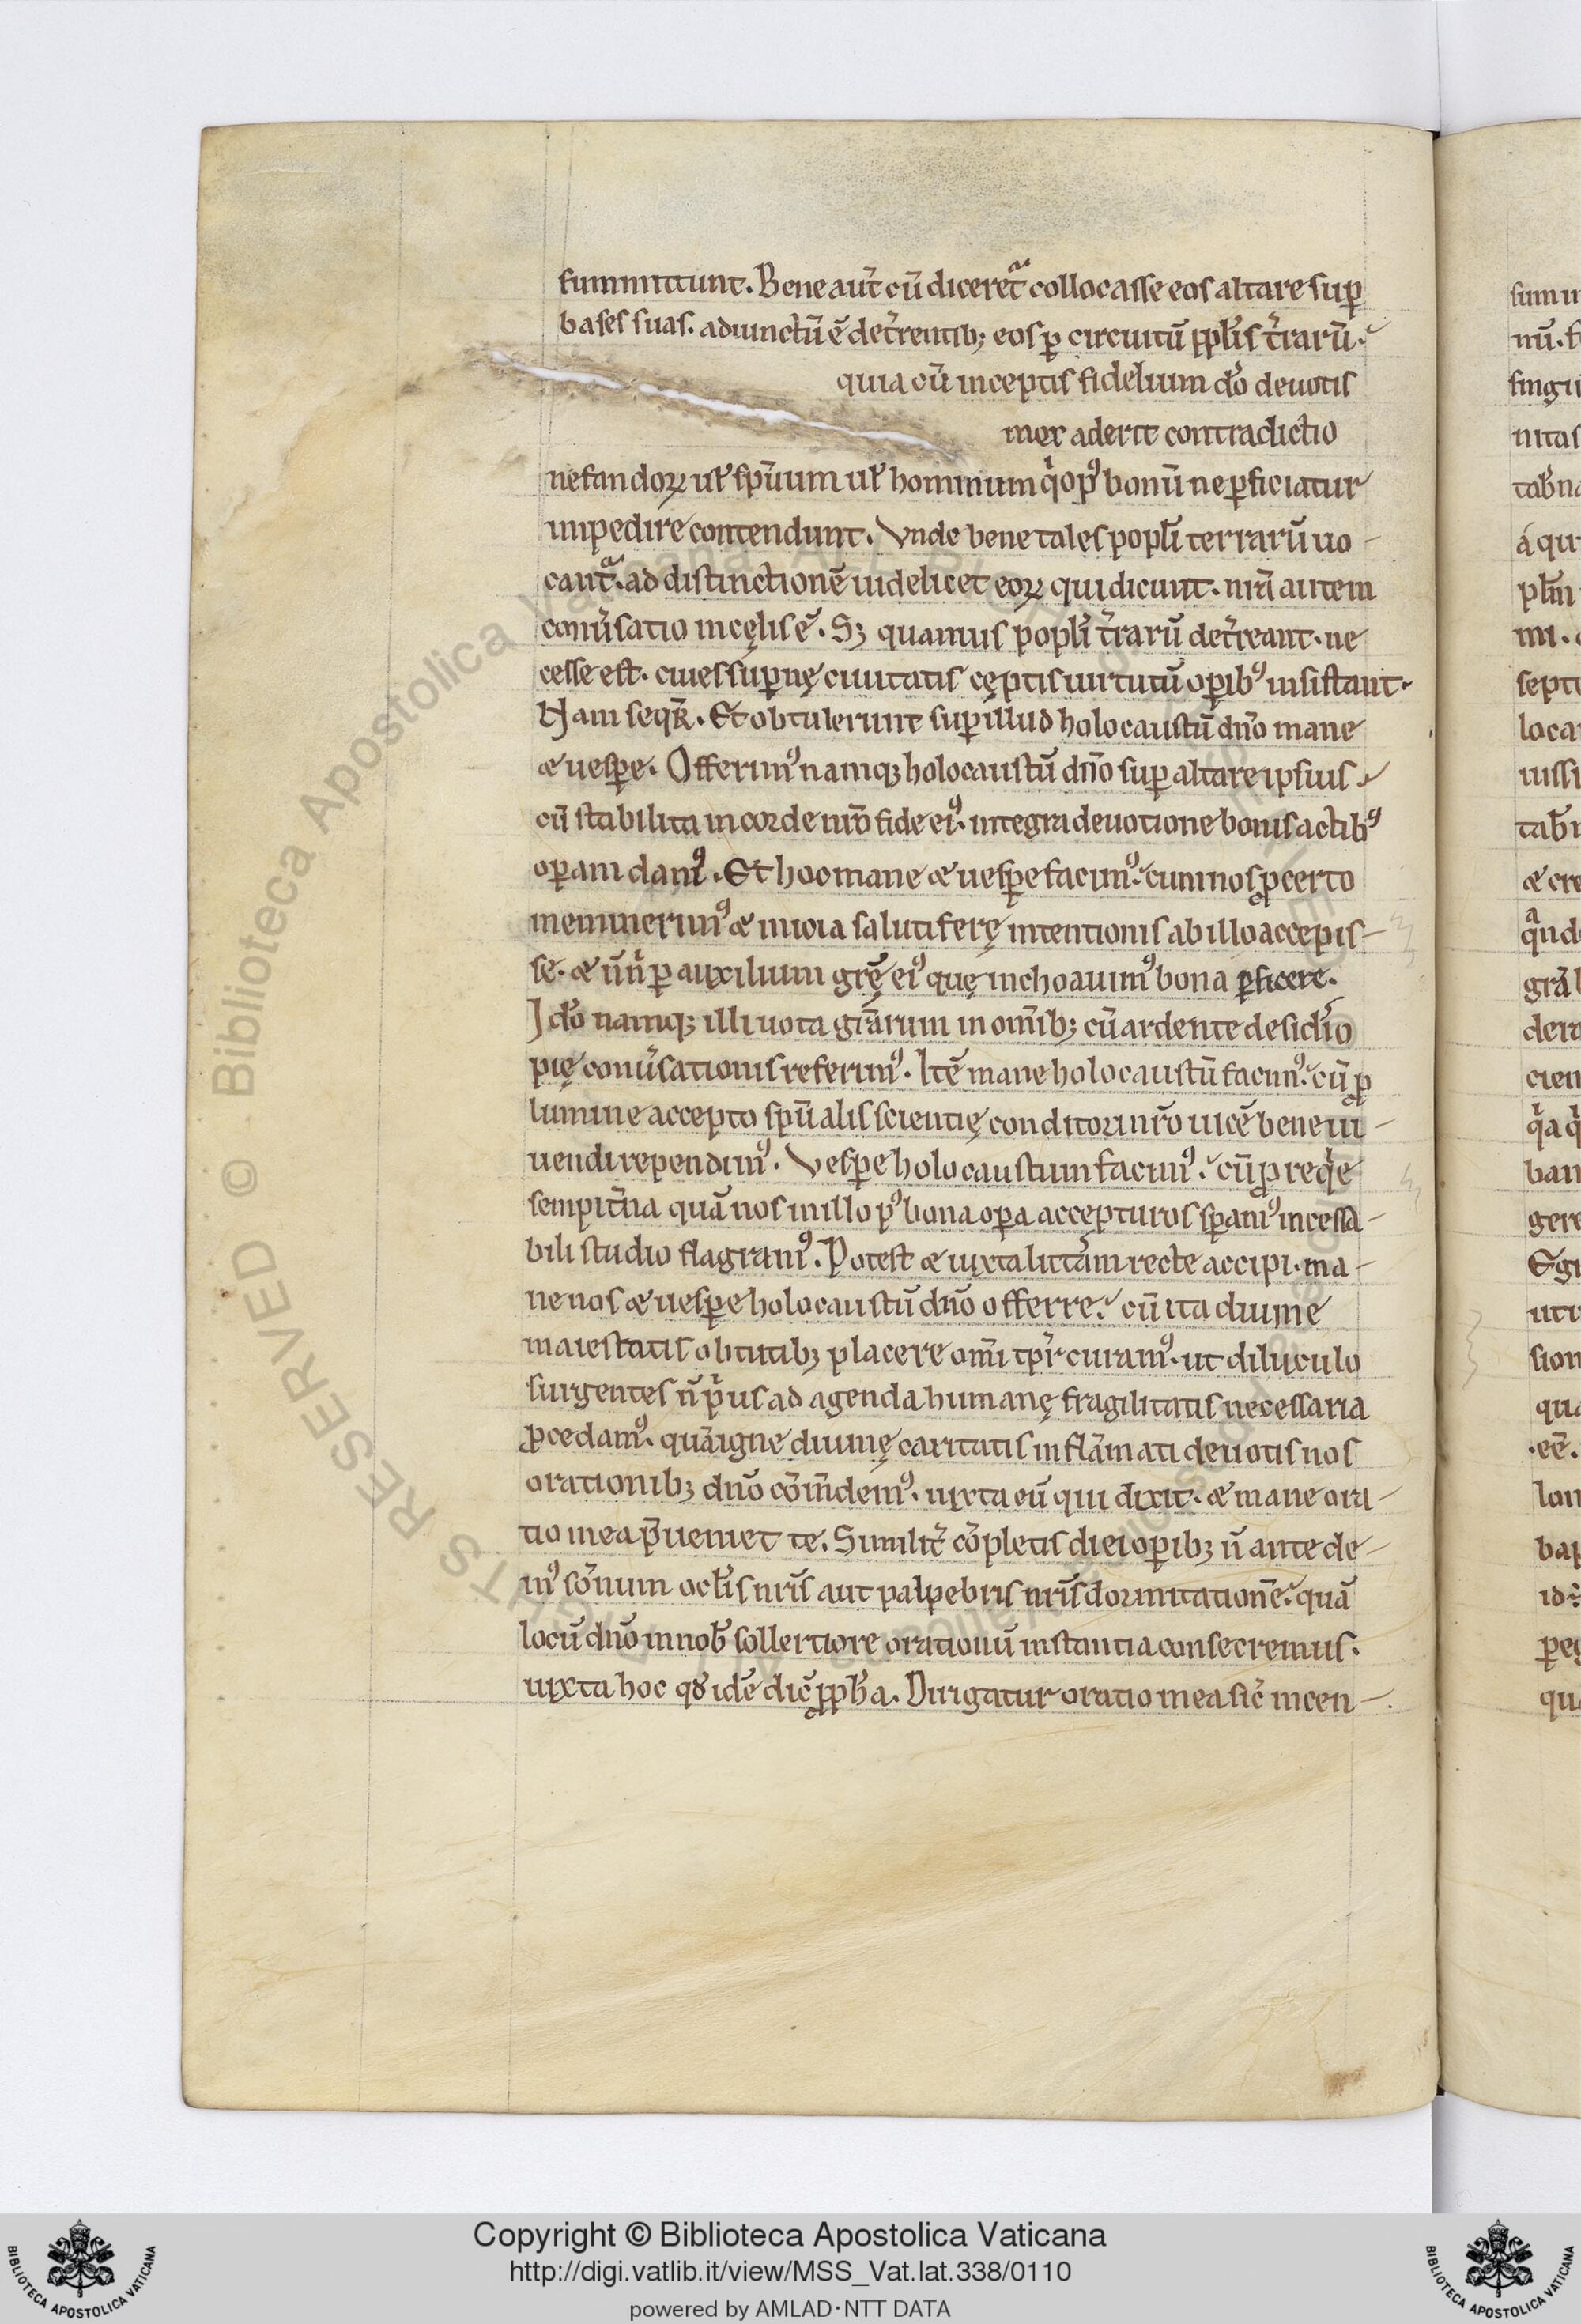 summittunt. Bene aut̄ cū diceret᷑ collocasse eos altare sup̱
bases suas. adiunctū ē det̄rentib; eos ꝑ circuitū pplīs t̄rarū.
quia cū inceptis fidelium dō deuotis
mox aderit contradictio
nefandoꝝ ul̄ spūum ul̄ hominum qͥ opꝰ bonū ne ꝑficiatur
impedire contendunt. Vnde bene tales popl̄i terrarū uo-
cant᷑. ad distinctionē uidelicet eoꝝ qui dicunt. nr̄a autem
conūsatio in cęlis ē. S; quamuis popl̄i t̄rarū det̄reant. ne
cesse est. ciues supernę ciuitatis cęptis uirtutū oꝑibꝰ insistant.
Nam seqR̄. Et obtulerunt suꝑ illud holocaustū dn̄o mane
& uesꝑe. Offerimꝰ namq; holocaustū dn̄o suꝑ altare ipsius.
cū stabilita in corde nr̄o fide eiꝰ. integra deuotione bonis actibꝰ
oꝑam damꝰ. Et hoc mane & uesꝑe facimꝰ. cum nos ꝓ certo
meminerimꝰ & initia salutiferę intentionis ab illo accepis-
se. & n̄ n̄ ꝑ auxilium gr̄ę eiꝰ quę inchoauimꝰ bona ꝑficere.
Idō namq; illi uota gr̄arum in om̄ib; cū ardente desidīo
pię conūsationis referimꝰ. Itē mane holocaustū facimꝰ. cū ꝓ
lumine accepto spūalis scientię conditori nr̄o uicē bene ui-
uendi rependimꝰ. Vesꝑe holocaustum facimꝰ. cū ꝓ reqͥe
sempit̄na quā nos in illo pꝰ bona oꝑa accepturos sꝑamꝰ incessa-
bili studio flagramꝰ. Potest & iuxta litt̄am recte accipi. ma-
ne nos & uesꝑe holocaustū dn̄o offerre. cū ita diuinę
maiestatis obtutib; placere om̄i tp̄r curamꝰ. ut diluculo
surgentes n̄ pͥus ad agenda humanę fragilitatis necessaria
ꝓcedamꝰ. quā igne diuinę caritatis inflāmati deuotis nos
orationib; dn̄o cōm̄demꝰ. iuxta eū qui dixit. & mane ora-
tio mea p̄ueniet te. Similit̄ cōpletis diei oꝑib; n̄ ante de-
mꝰ sōnum ocl̄is nr̄is aut palpebris nr̄is dormitationē. quā
locū dn̄o in nob̄ sollertiore orationū instantia consecremus.
iuxta hoc qđ idē dic̄ ꝓph̄a. Dirigatur oratio mea sic̄ incen-
RESERVED © Biblioteca Apostolica Vaticana
Copyright © Biblioteca Apostolica Vaticana
http://digi.vatlib.it/view/MSS_Vat.lat.338/0110
powered by AMLAD·NTT DATA
BIBLIOTECA APOSTOLICA VATICANA
BIBLIOTECA APOSTOLICA VATICANA